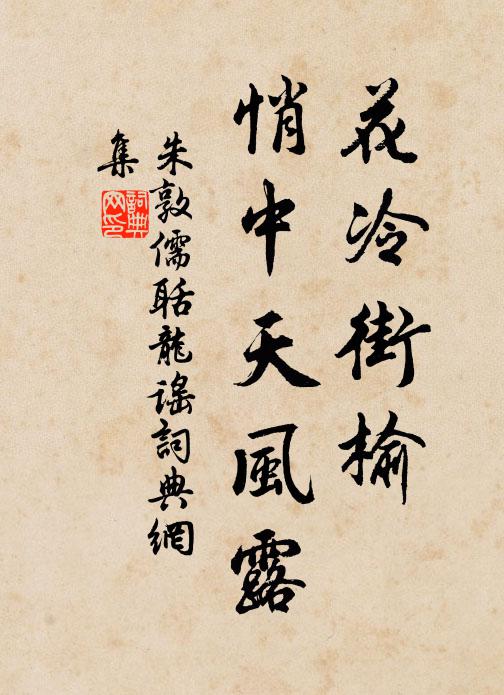 花冷街榆
悄中天風露
朱敦儒聒龍謠詞典網
集
詞典網印